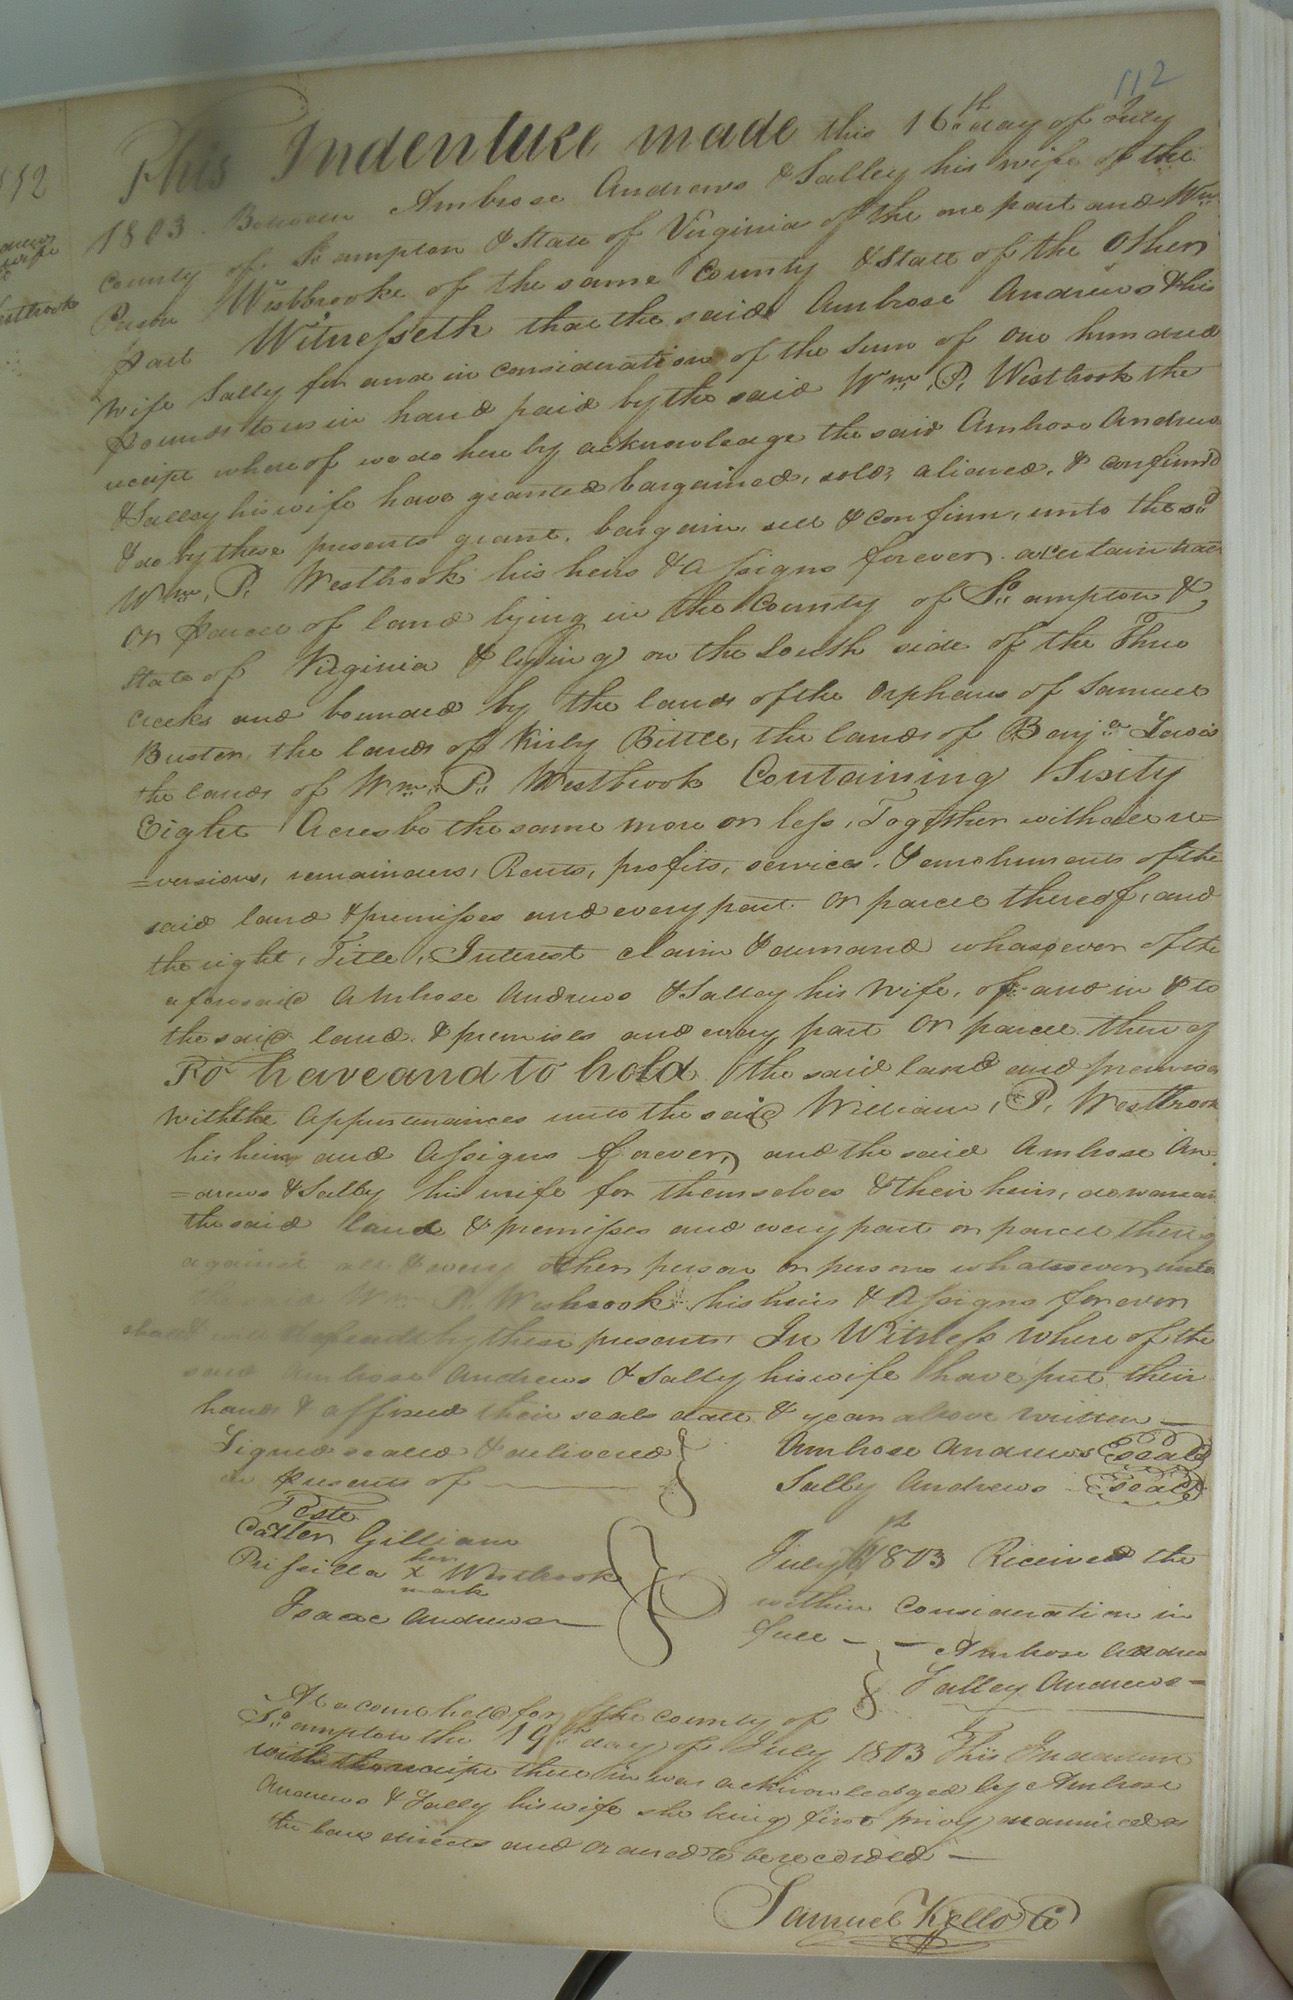 112
This Indenture made this 16th day of July
1803. Between Ambrose Andrews & Salley his wife of the
County of So ampton & State of Virginia of the one part and Wm
Person Westbrooke of the same County & State of the Other
part Witnesseth that the said Ambrose Andrews & his
wife Sally for and in consideration of the sum of one hundred
pounds to us in hand paid by the said Wm. P. Westbrook the
receipt where of we do here by acknowledge the said Ambrose Andrews
& Salley his wife have granted bargained, sold, aliened, & confirmd
& do by these presents grant, bargain, sell & confirm, unto the sd
Wm. P. Westbrook his heirs & Assigns forever. a certain tract
or parcel of land lying in the County of So ampton &
State of Virginia & lying on the South side of the Three
Creeks and bounded by the lands of the Orphans of Samuel
the lands of Kirby Bittle, the lands of Benja Lewis
the lands of Wm. P. Westbrook Containing Sixity
Eight Acres be the same more or less, Together with all re=
=versions, remainders, Rents, profits, services, & emoluments of the
said land & premisses and every part or parcel thereof, and
the right, Title, Interest claim & demand whatsoever of the
aforesaid Ambrose Andrews & Salley his wife, of and in & to
the said land & premises and every part or parcel there of
To have and to hold the said land and premises
with the Appurtenances unto the said William, P, Westbrook
his heirs and Assigns forever, and the said Ambrose An=
=drews & Sally his wife for themselves & their heirs, do warrant
the said land & premisses and every part or parcel there of
against all & every other person or persons whatsoever, unto
the said Wm P. Westbrook his heirs & Assigns forever
shall will defend by these presents. In Witness where of the
said Ambrose Andrews & Sally his wife have put their
hands & affixed their seals date & year above written
Signed sealed & delivered Ambrose Andrews seal
in presents of Sally Andrews seal
Teste
Gilliam
Prissilla her x mark Westbrook
Isaac Andrews
July 1803 Received the
within Consideration in
full Ambrose Andrews
Salley Andrews
At a court held for the county of
So ampton the 19th day of July 1803 This Indenture
with the receipt there in was acknowledged by Ambrose
Andrews & Sally his wife she being first privy examined as
the law directs and ordered to be recorded
Samuel Kello C